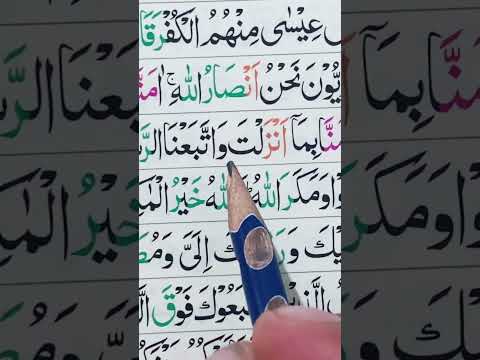 عِيْسٰى مِنْهُمُ الْكُفْرَ قَا
يُّوْنَ نَحْنُ اَنْصَارُ اللّٰهِ ۚ اٰمَنَّا
مَنَّا بِمَاۤ اَنْزَلْتَ وَاتَّبَعْنَا الرَّ
وْا وَمَكَرَ اللّٰهُ اللّٰهُ خَيْرُ الْمٰ
يْكَ وَرَ كَ اِلَىَّ وَمُ
الَّذِ بَعُوْكَ فَوْقَ الَّ